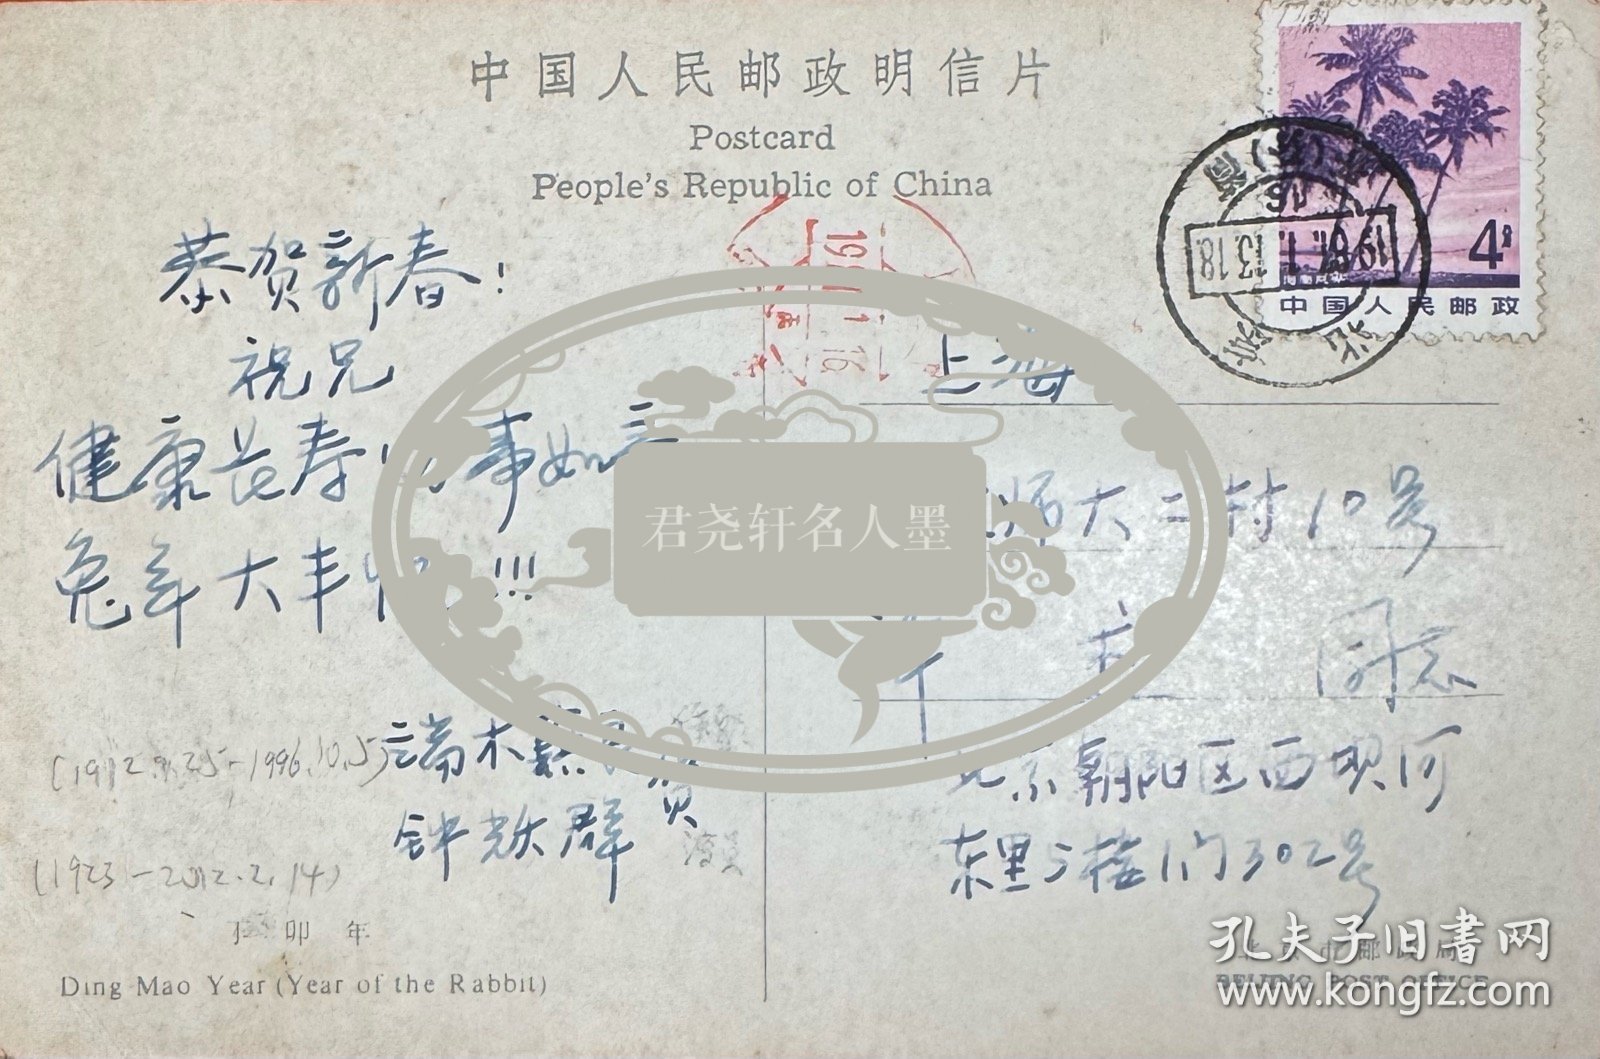 中国人民邮政明信片
Postcard
People's Republic of China
4分
中国人民邮政
北京
1987.1.13.18
恭贺新春！
祝兄
健康长寿 事如意
兔年大丰收!!!
端木蕻良 贺
钟耀群
(1912.9.25-1996.10.5)
(1923-2012.2.14)
丁卯年
Ding Mao Year (Year of the Rabbit)
上海
师大二村10号
同志
北京朝阳区西坝河
东里 楼1门302号
北京市邮政局
BEIJING POST OFFICE
君尧轩名人墨
孔夫子旧书网
www.kongfz.com